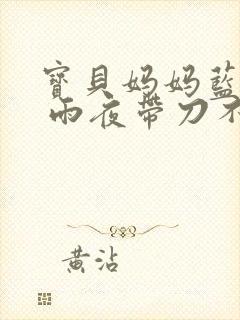 寶貝媽媽藍
雨夜帶刀不
黃沾